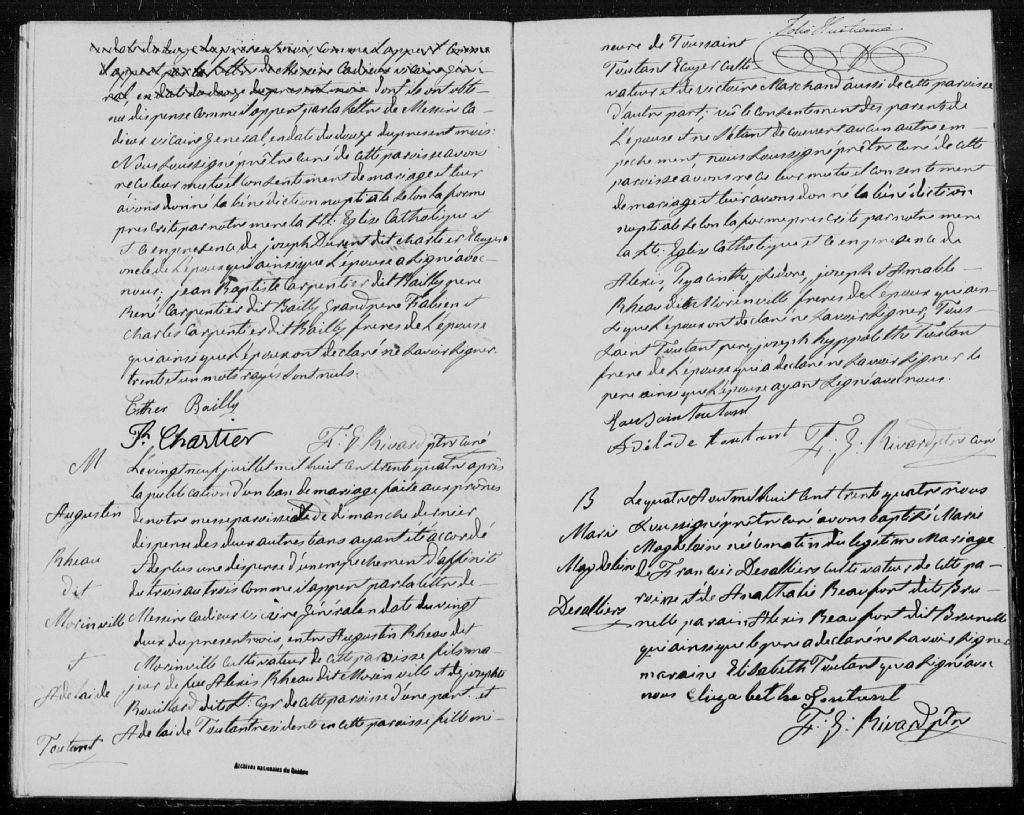 en date du douze du present mois, comme il appert comme
il appert par la lettre de Messire Cadieux vicaire géné-
ral en date du douze du present mois dont ils ont obte-
nu dispense comme il appert par la lettre de Messire Ca-
dieux vicaire General en date du douze du present mois:
Nous soussigné prêtre curé de cette paroisse avons
recu leur mutuel consentement de mariage et leur
avons donné la bénédiction nuptiale selon la forme
prescrite par notre mere la Ste. Eglise Catholique et
et ce en presence de joseph Durent dit Chartier Ecuyer
oncle de l'epoux qui ainsi que l'epouse a signé avec
nous; jean Baptiste Carpentier dit Bailly pere
René Carpentier dit Bailly Grand pere Fabien et
Charles Carpentier dit Bailly freres de l'epouse
qui ainsi que l'epoux ont declaré ne savoir signer.
trente et un mots rayés sont nuls.
Esther Bailly
Chartier F. E. Rivard ptre curé
M
Augustin
Rheau
dit
Morinville
et
Adelaide
Toutant
Le vingt neuf juillet mil huit cent trente quatre après
la publication d'un ban de mariage faite aux prônes
de notre messe paroissiale de dimanche dernier
dispense des deux autres bans ayant été accordé
et de plus une dispense d'un empechement d'affinité
du trois au trois comme il appert par la lettre de
Messire Cadieux vicaire Général en date du vingt
deux du present mois, entre Augustin Rheau dit
Morinville cultivateur de cette paroisse fils ma-
jeur de feu Alexis Rheau dit Morinville et de josephte
Rouillard dite St. Cyr de cette paroisse d'une part, et
Adelaide Toutant residente en cette paroisse fille mi-
Archives nationales du Québec
neure de Toussaint
Toutant Ecuyer culti-
vateur et de victoire Marchand aussi de cette paroisse
d'autre part; vû le consentement des parents de
l'epouse et ne s'étant decouvert aucun autre em-
pechement nous soussigné prêtre curé de cette
paroisse avons recu leur mutuel consentement
de mariage et leur avons donné la bénédiction
nuptiale selon la forme prescrite par notre mere
la Ste. Eglise Catholique et ce en presence de
Alexis, Hyacinthe, Isidore, joseph et Amable
Rheau dit Morinville freres de l'epoux qui ain-
si que l'epoux ont declaré ne savoir signer, Tous-
saint Toutant pere, joseph hyppolithe Toutant
frere de l'epouse qui a declaré ne savoir signer le
pere ainsi que l'epouse ayant signé avec nous.
Toussaint toutant
Adélaide toutant F. E. Rivard ptre curé
B
Marie
Magdeleine
Desalliers
Le quatre Aout mil huit cent trente quatre nous
soussigné prêtre curé avons baptisé Marie
Magdelaine née le matin du legitime Mariage
de François Desalliers cultivateur de cette pa-
roisse et de Anathalie Beaufort dite Bru-
nelle parain Alexis Beaufort dit Brunelle
qui ainsi que le pere a declaré ne savoir signer
maraine Elisabeth Toutant qui a signé avec
nous elizabethe toutant
F. E. Rivard ptre